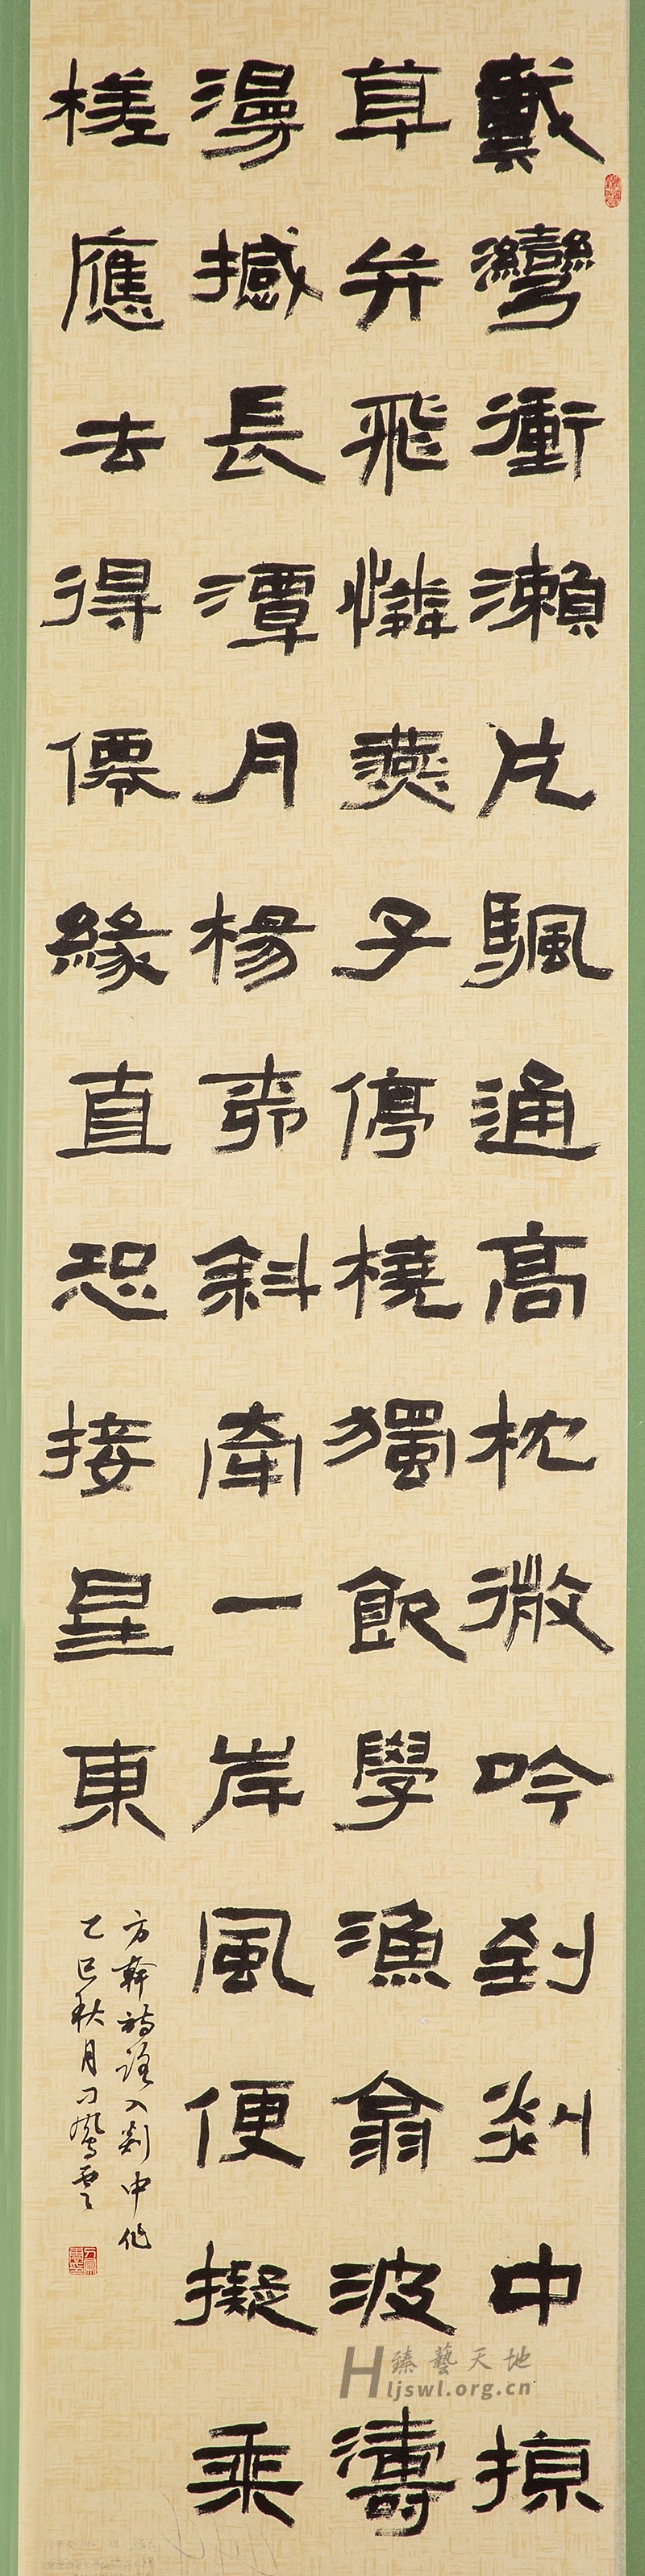 戴灣衝瀨片颿通高枕微吟到剡中掠
草并飛憐燕子停橈獨飲學漁翁波濤
漫撼長潭月楊柳斜牽一岸風便擬乘
槎應去得僊緣直恐接星東
方幹詩路入剡中作
乙巳秋月刁鳳雲
臻藝天地
Hljswl.org.cn